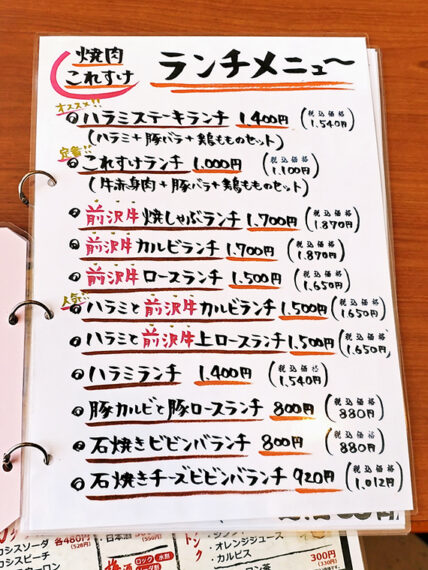 焼肉
これすけ
ランチメニュ〜
オススメ!!
ハラミステーキランチ 1,400円 (税込価格 1,540円)
(ハラミ+豚バラ+鶏もものセット)
定番!!
これすけランチ 1,000円 (税込価格 1,100円)
(牛赤身肉+豚バラ+鶏もものセット)
前沢牛焼しゃぶランチ 1,700円 (税込価格 1,870円)
前沢牛カルビランチ 1,700円 (税込価格 1,870円)
前沢牛ロースランチ 1,500円 (税込価格 1,650円)
人気!!
ハラミと前沢牛カルビランチ 1,500円 (税込価格 1,650円)
ハラミと前沢牛上ロースランチ 1,500円 (税込価格 1,650円)
ハラミランチ 1,400円 (税込価格 1,540円)
豚カルビと豚ロースランチ 800円 (税込価格 880円)
石焼きビビンバランチ 800円 (税込価格 880円)
石焼きチーズビビンバランチ 920円 (税込価格 1,012円)
各480円
(528円)
日本酒
ロック 水割
オレンジジュース
カルピス
300円
(330円)